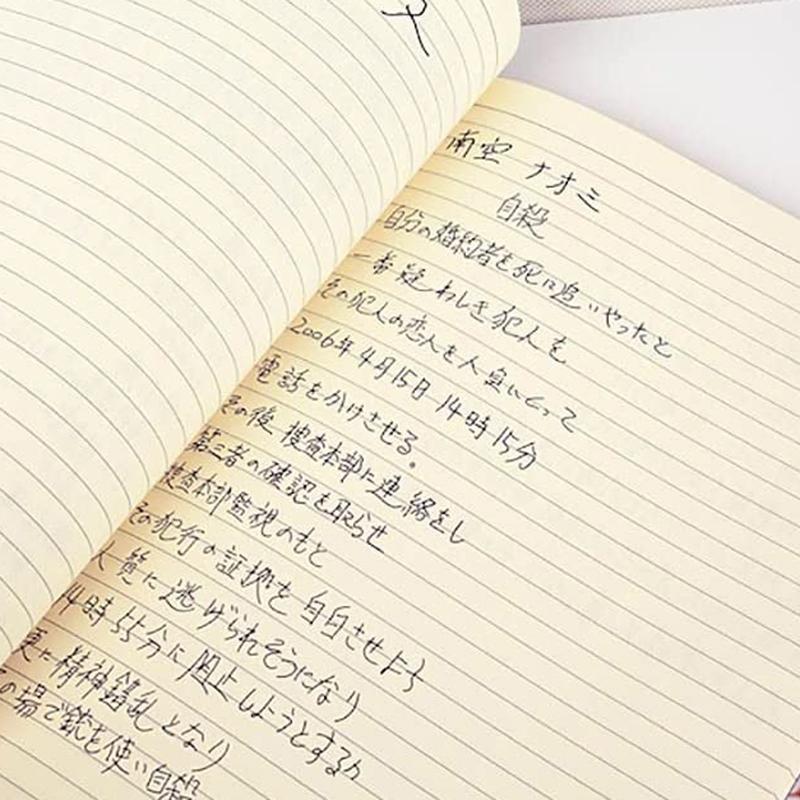 文
南空 ナオミ
自殺
自分の婚約者を死に追いやったと
一番疑わしき犯人を
その犯人の恋人を人質にとって
2006年4月15日 14時15分
電話をかけさせる。
その後 捜査本部に連絡をし
第三者の確認を取らせ
捜査本部監視のもと
その犯行の証拠を自白させよう
人質に逃げられそうになり
14時55分に阻止しようとするが
更に精神錯乱となり
の場で銃を使い自殺